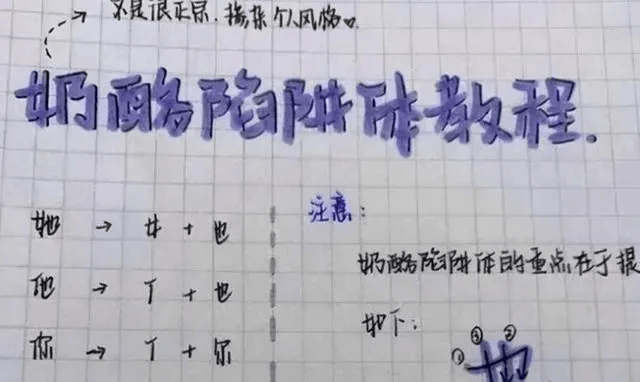 不是很正宗,掺杂个人风格。
奶酪陷阱体教程.
她 → 女 + 也
他 → 亻 + 也
你 → 亻 + 尔
注意:
奶酪陷阱体的重点在于提
如下:
① ③ ②
也